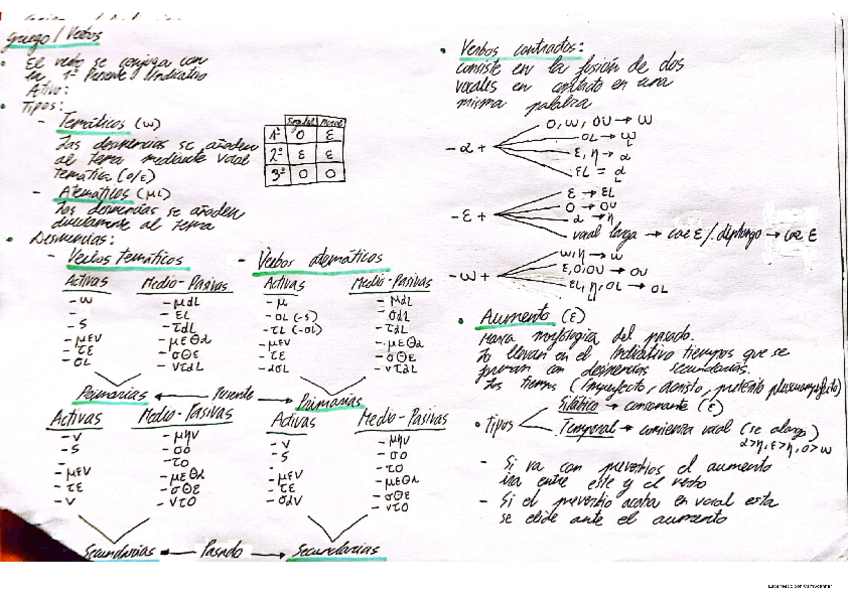 Griego / Verbos
• El verbo se conjuga con
la 1ª Persona Indicativo
Activo:
• Tipos:
- Temáticos (ω)
Las desinencias se añaden
al tema mediante vocal
temática (ο/ε)
Singular Plural
1ª ο ε
2ª ε ε
3ª ο ο
- Atemáticos (μι)
Las desinencias se añaden
directamente al tema
• Desinencias:
- Verbos temáticos
Activas Medio-Pasivas
- ω - μαι
- - ει
- ς - ται
- μεν - μεθα
- τε - σθε
- σι - νται
- Verbos atemáticos
Activas Medio-Pasivas
- μ - μαι
- σι (-ς) - σαι
- τι (-σι) - ται
- μεν - μεθα
- τε - σθε
- ασι - νται
Primarias ← Presente → Primarias
Activas Medio-Pasivas
- ν - μην
- ς - σο
- - το
- μεν - μεθα
- τε - σθε
- ν - ντο
Activas Medio-Pasivas
- ν - μην
- ς - σο
- - το
- μεν - μεθα
- τε - σθε
- σαν - ντο
Secundarias ← Pasado → Secundarias
• Verbos contractos:
consiste en la fusión de dos
vocales en contacto en una
misma palabra
- α +
ο, ω, ου → ω
οι → ῳ
ε, η → α
ει = ᾳ
- ε +
ε → ει
ο → ου
α → η
vocal larga → cae ε / diptongo → cae ε
- ω +
ω, η → ω
ε, ο, ου → ου
ει, ῃ, οι → οι
• Aumento (ε)
Marca morfología del pasado.
Lo llevan en el Indicativo tiempos que se
forman con desinencias secundarias.
Los tiempos (imperfecto, aoristo, pretérito pluscuamperfecto)
• Tipos
Silábico → consonante (ε)
Temporal → comienza vocal (se alarga)
α>η, ε>η, ο>ω
- Si va con preverbios el aumento
irá entre este y el verbo
- Si el preverbio acaba en vocal esta
se elide ante el aumento